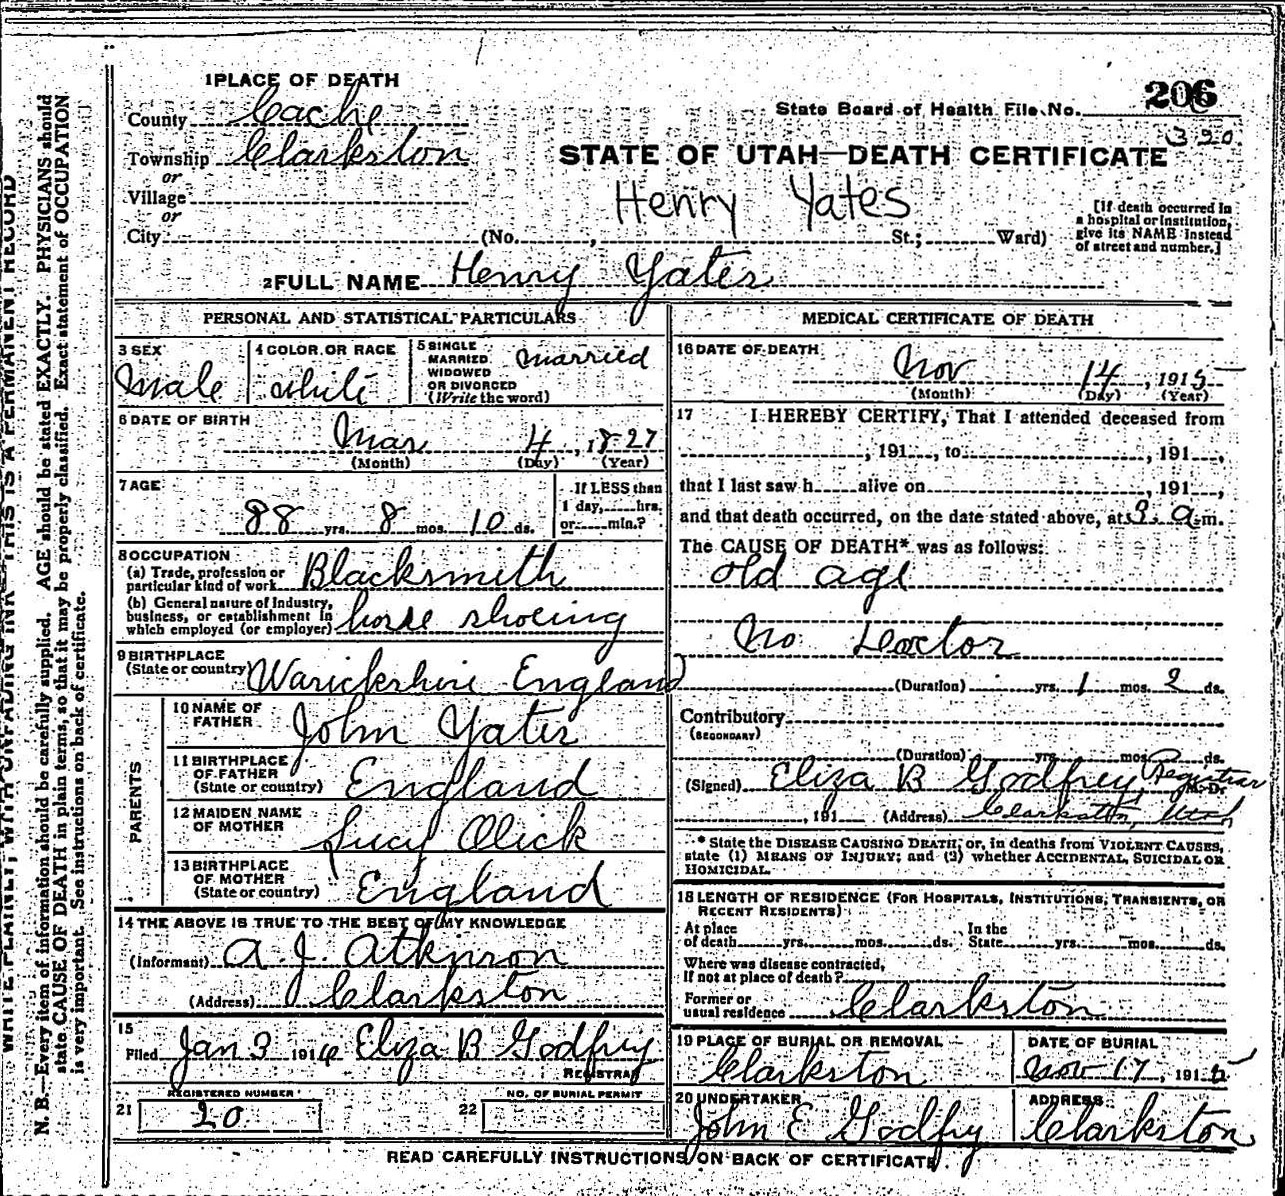 1 PLACE OF DEATH
County Cache
Township Clarkston
or
Village
or
City (No. , St.; Ward)
State Board of Health File No. 206
320.
STATE OF UTAH—DEATH CERTIFICATE
Henry Yates
[If death occurred in
a hospital or institution,
give its NAME instead
of street and number.]
2 FULL NAME Henry Yates
PERSONAL AND STATISTICAL PARTICULARS
3 SEX
Male
4 COLOR OR RACE
white
5 SINGLE
MARRIED
WIDOWED
OR DIVORCED
(Write the word)
married
6 DATE OF BIRTH
Mar 4, 1827
(Month) (Day) (Year)
7 AGE
88 yrs. 8 mos. 10 ds.
If LESS than
1 day, hrs.
or min.?
8 OCCUPATION
(a) Trade, profession or
particular kind of work Blacksmith
(b) General nature of industry,
business, or establishment in
which employed (or employer) horse shoeing
9 BIRTHPLACE
(State or country) Warickshire England
PARENTS
10 NAME OF
FATHER John Yates
11 BIRTHPLACE
OF FATHER
(State or country) England
12 MAIDEN NAME
OF MOTHER Lucy Olick
13 BIRTHPLACE
OF MOTHER
(State or country) England
14 THE ABOVE IS TRUE TO THE BEST OF MY KNOWLEDGE
(Informant) A. J. Atkinson
(Address) Clarkston
15
Filed Jan 3 1916 Eliza B Godfrey
REGISTRAR
REGISTERED NUMBER
21 20
NO. OF BURIAL PERMIT
22
MEDICAL CERTIFICATE OF DEATH
16 DATE OF DEATH
Nov 14, 1915
(Month) (Day) (Year)
17 I HEREBY CERTIFY, That I attended deceased from
, 191 , to , 191 ,
that I last saw h alive on , 191 ,
and that death occurred, on the date stated above, at 3. a.m.
The CAUSE OF DEATH* was as follows:
old age
No Doctor
(Duration) yrs. 1 mos. 2 ds.
Contributory
(SECONDARY)
(Duration) yrs. mos. ds.
(Signed) Eliza B Godfrey, Registrar M. D.
, 191 (Address) Clarkston, Utah
* State the DISEASE CAUSING DEATH, or, in deaths from VIOLENT CAUSES,
state (1) MEANS OF INJURY; and (2) whether ACCIDENTAL, SUICIDAL OR
HOMICIDAL.
18 LENGTH OF RESIDENCE (FOR HOSPITALS, INSTITUTIONS, TRANSIENTS, OR
RECENT RESIDENTS)
At place
of death yrs. mos. ds.
In the
State yrs. mos. ds.
Where was disease contracted,
If not at place of death?
Former or
usual residence Clarkston
19 PLACE OF BURIAL OR REMOVAL
Clarkston
DATE OF BURIAL
Nov 17, 1915
20 UNDERTAKER
John E Godfry
ADDRESS
Clarkston
READ CAREFULLY INSTRUCTIONS ON BACK OF CERTIFICATE.
WRITE PLAINLY, WITH UNFADING INK—THIS IS A PERMANENT RECORD
N. B.—Every item of information should be carefully supplied. AGE should be stated EXACTLY. PHYSICIANS should
state CAUSE OF DEATH in plain terms, so that it may be properly classified. Exact statement of OCCUPATION
is very important. See instructions on back of certificate.